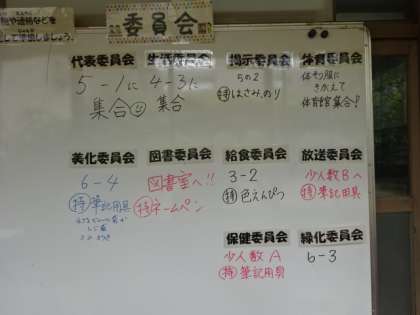 委員会
代表委員会
5-1に
集合
4-3に
集合
掲示委員会
5の2
㊕はさみ、のり
体育委員会
体そう服に
きがえて
体育館集合!
美化委員会
6-4
㊕筆記用具
図書委員会
図書室へ!!
㊕ネームペン
給食委員会
3-2
㊕色えんぴつ
放送委員会
少人数Bへ
㊕筆記用具
保健委員会
少人数 A
㊕筆記用具
緑化委員会
6-3